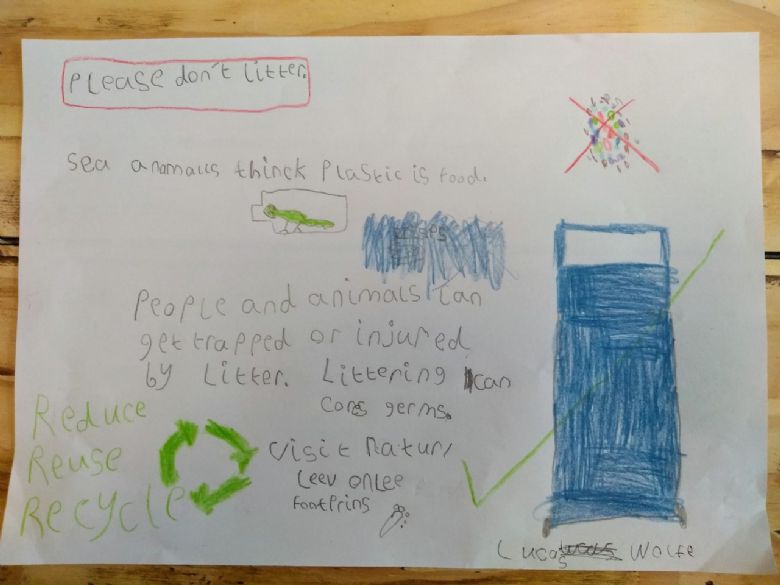 Please don't litter.
Sea anamalls thinck Plastic is food.
People and animals can
get trapped or injured
by Litter. Littering can
cors germs.
Reduce
Reuse
Recycle
Visit Natur,
Leev onlee
footprins
Lucas Wolfe